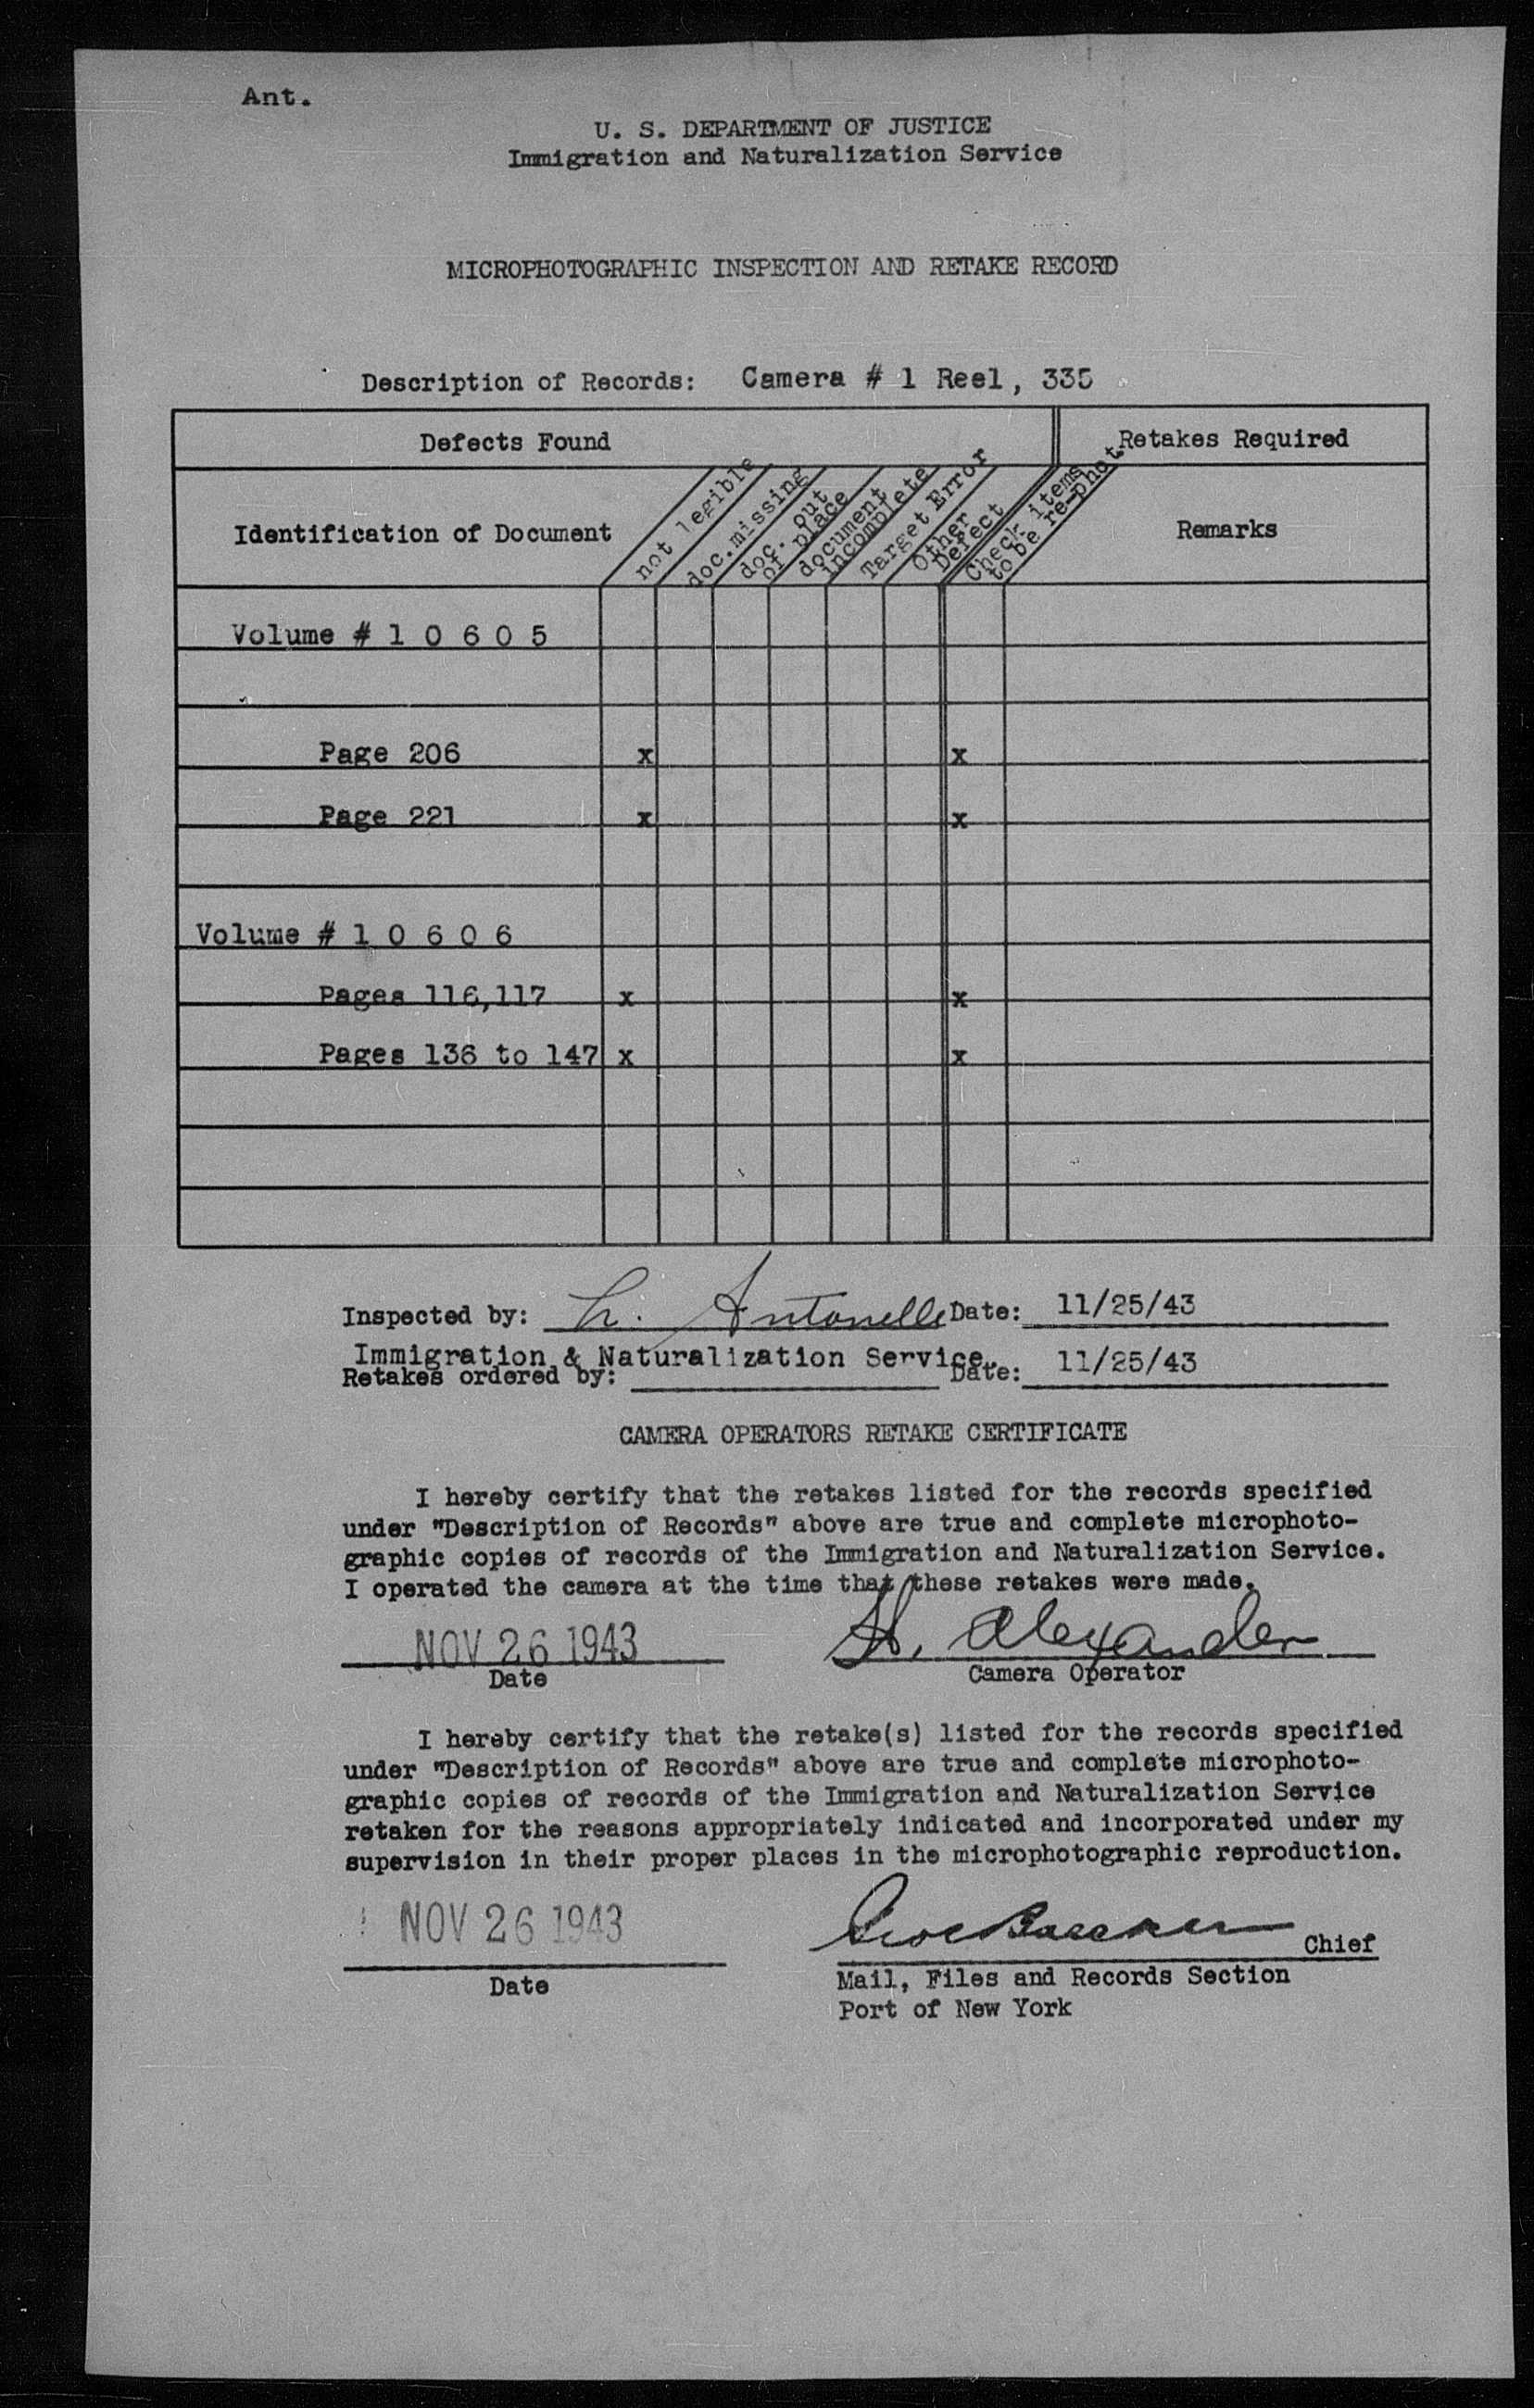 Ant.
U. S. DEPARTMENT OF JUSTICE
Immigration and Naturalization Service
MICROPHOTOGRAPHIC INSPECTION AND RETAKE RECORD
Description of Records: Camera # 1 Reel, 335
Defects Found
Retakes Required
Identification of Document
not legible
doc.missing
doc. out
of place
document
incomplete
Target Error
Other
Defect
Check items
to be re-phot
Remarks
Volume # 1 0 6 0 5
Page 206 x x
Page 221 x x
Volume # 1 0 6 0 6
Pages 116,117 x x
Pages 136 to 147 x x
Inspected by: Antonelli Date: 11/25/43
Immigration & Naturalization Service.
Retakes ordered by: Date: 11/25/43
CAMERA OPERATORS RETAKE CERTIFICATE
I hereby certify that the retakes listed for the records specified
under "Description of Records" above are true and complete microphoto-
graphic copies of records of the Immigration and Naturalization Service.
I operated the camera at the time that these retakes were made.
NOV 26 1943 H. Alexander
Date Camera Operator
I hereby certify that the retake(s) listed for the records specified
under "Description of Records" above are true and complete microphoto-
graphic copies of records of the Immigration and Naturalization Service
retaken for the reasons appropriately indicated and incorporated under my
supervision in their proper places in the microphotographic reproduction.
NOV 26 1943 Chief
Date Mail, Files and Records Section
Port of New York